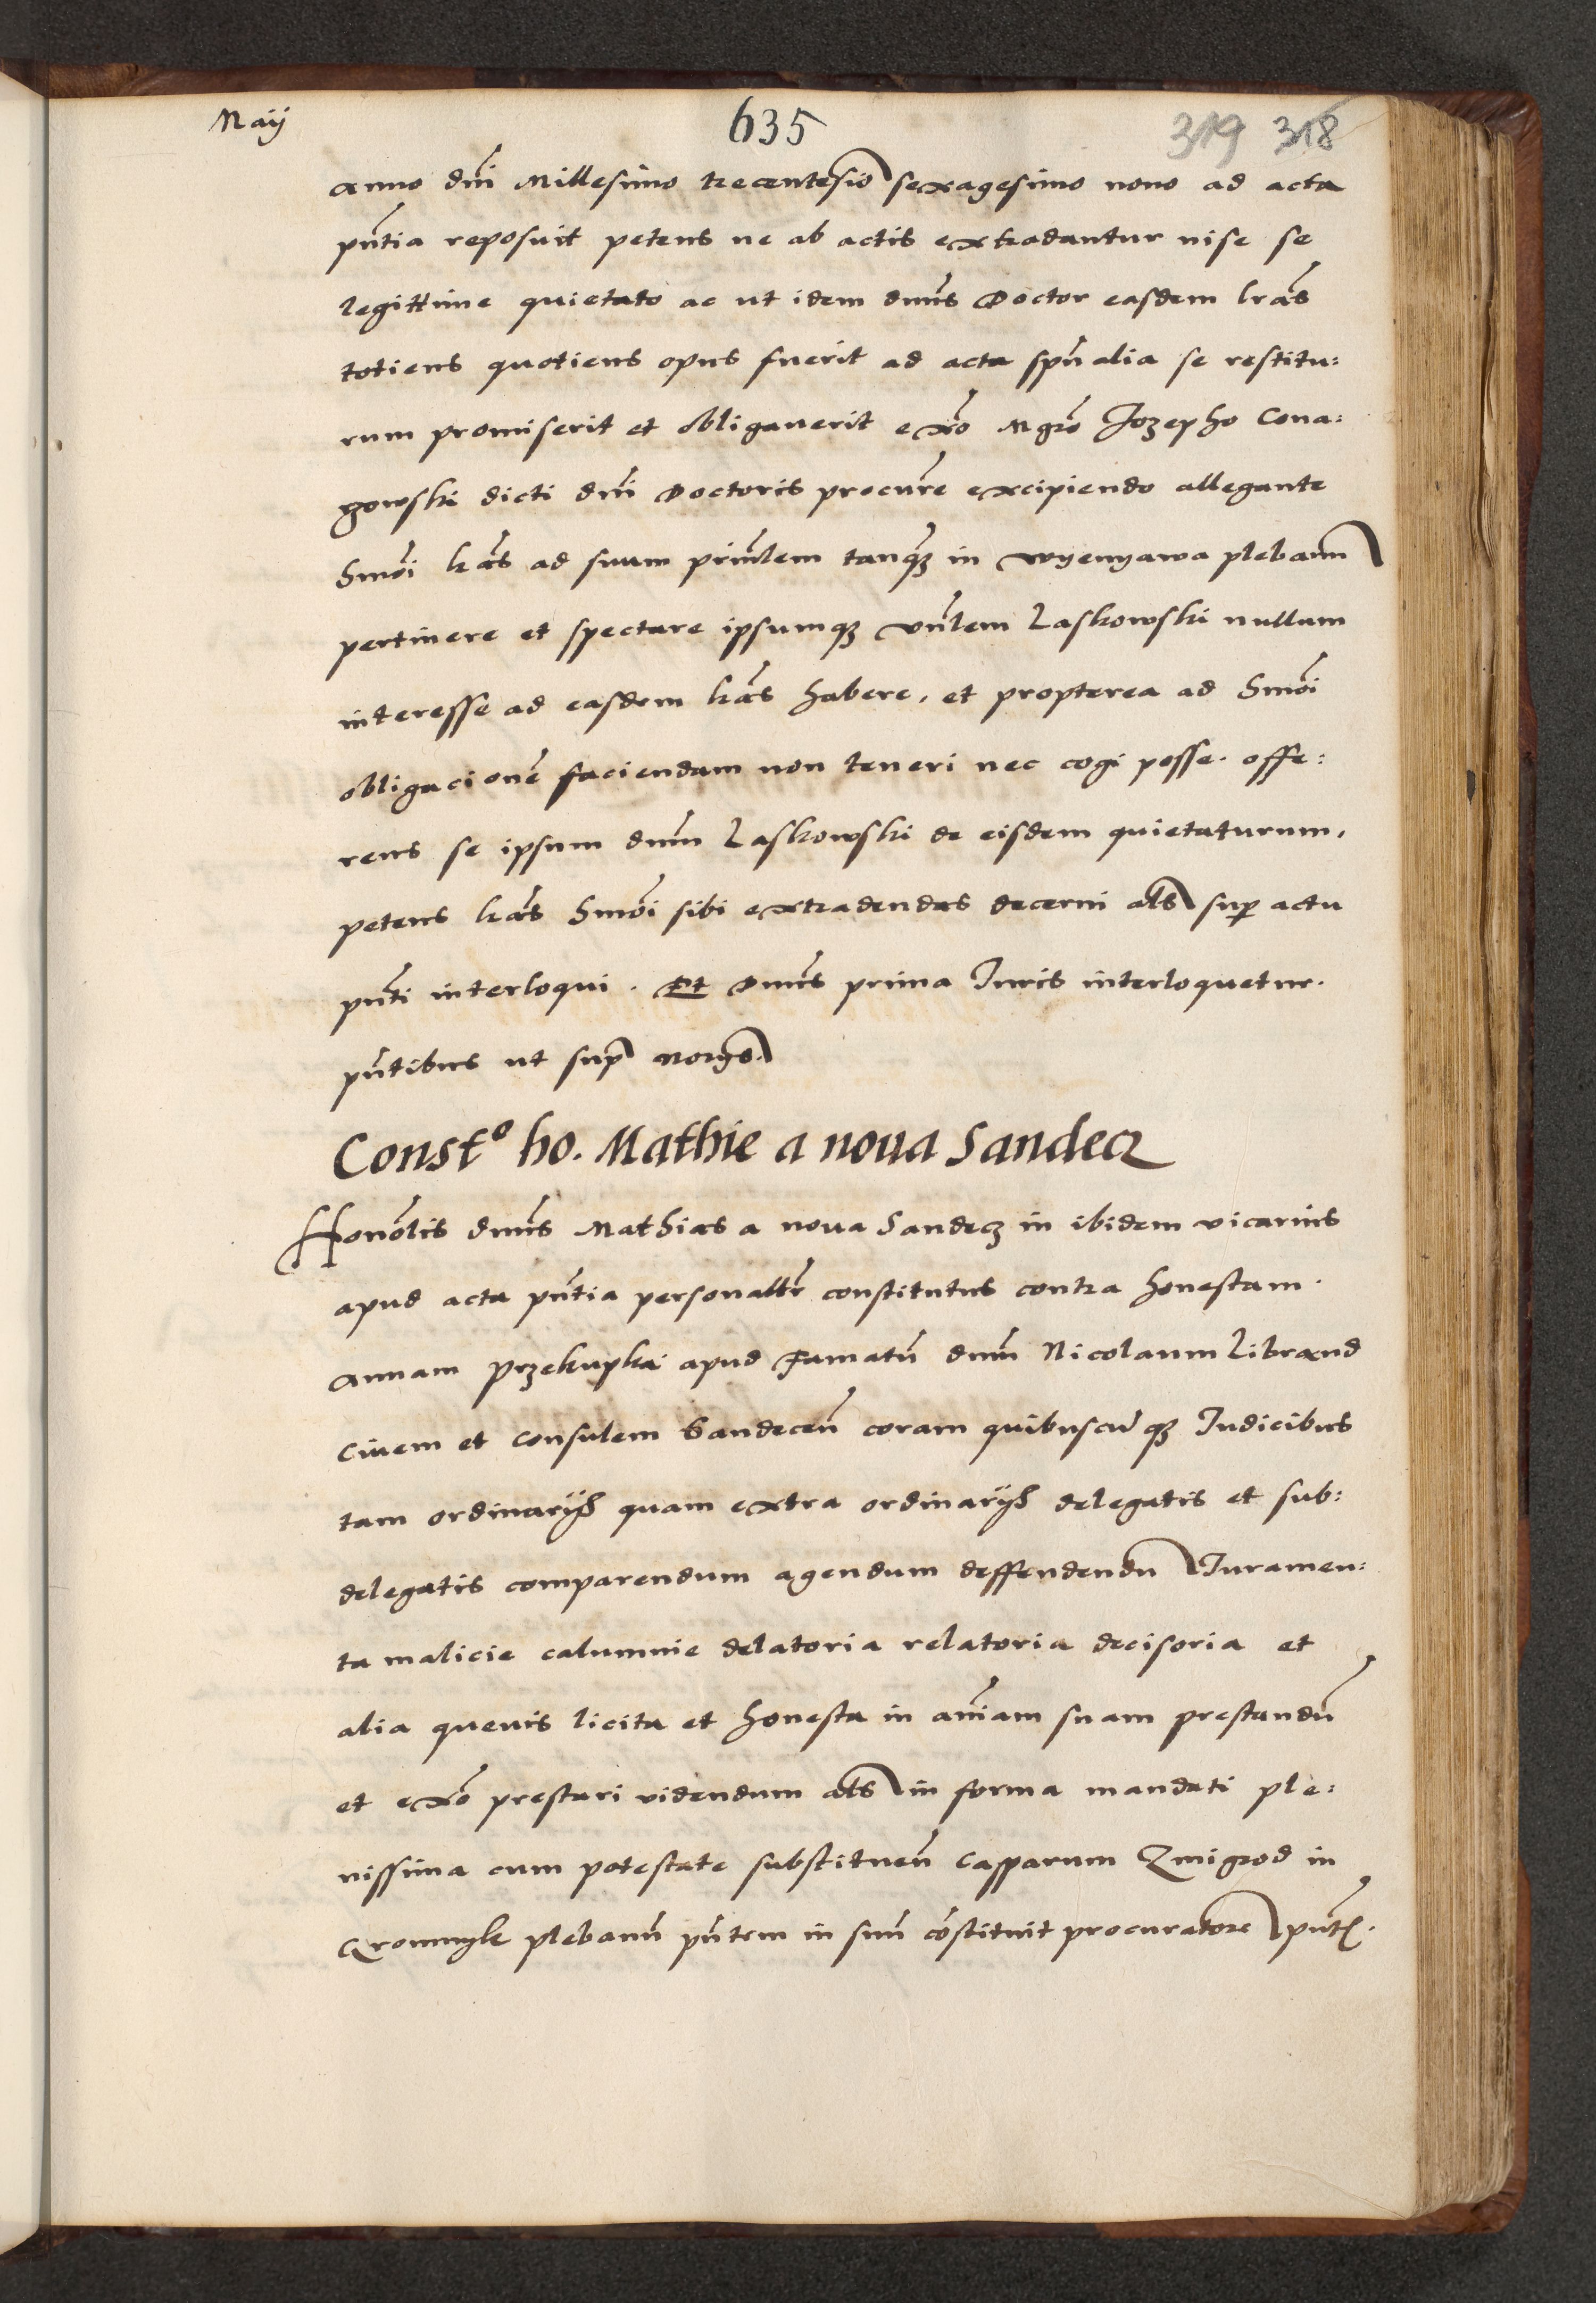 Maij
635
319 318
anno dñi Millesimo trecentesiõ sexagesimo nono ad acta
pñtia reposuit petens ne ab actis extradantur nise se
legittime quietato ac ut idem dnũs Doctor easdem lrãs
totiens quotiens opus fuerit ad acta spũalia se restitu:
rum promiserit et obligauerit exõ Mgrõ Jozepho Cona:
gowski dicti dñi Doctoris procurẽ excipiendo allegante
hmõi lrãs ad suum prinćlem tanq̃ꝫ in Wyenyawa plebanũ
pertinere et spectare ipsumqꝫ vñlem Laskowski nullum
interesse ad easdem lrãs habere, et propterea ad hmõi
obligacionẽ faciendam non teneri nec cogi posse. offe:
rens se ipsum dnũm Laskowski de eisdem quietaturum,
petens lrãs hmõi sibi extradendas decerni als̃ sup̱ actu
pñti interloqui. Et Dnũs prima Juris interloquetur.
pñtibus ut sup̃ norijs.
Constᵒ ho. Mathie a noua Sandecz
Honõlis dnũs Mathias a noua Sandecz in ibidem vicarius
apud acta pñtia personallr̃ constitutus contra honestam.
Annam Przekupka apud Famatũ dnũm Nicolaum Librand
Ciuem et consulem Sandeceñ coram quibuscũqꝫ Judicibus
tam ordinarijs quam extra ordinarijs delegatis et sub:
delegatis comparendum agendum deffendendũ Juramen:
ta malicie calumnie delatoria relatoria decisoria et
alia queuis licita et honesta in anĩam suam prestandũ
et exõ prestari videndum als̃ in forma mandati ple:
nissima cum potestate substitueñ Casparum Zmigrod in
Cromnyk plebanũ pñtem in suũ cõstituit procuratorẽ pñtꝭ.